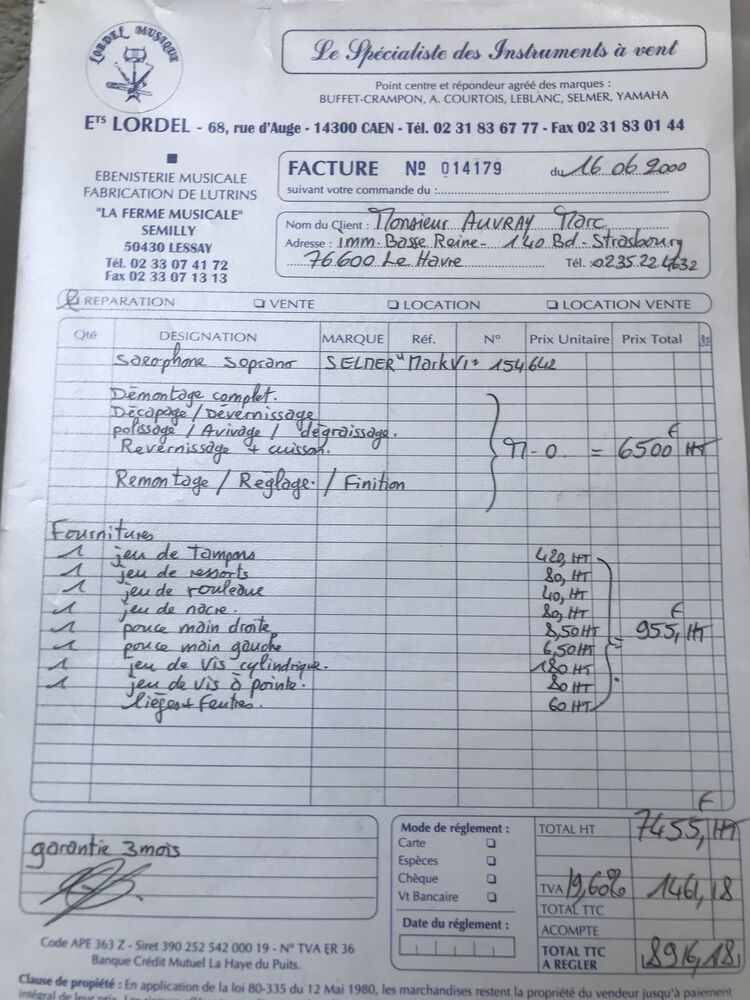 LORDEL MUSIQUE
Le Spécialiste des Instruments à vent
Point centre et répondeur agréé des marques :
BUFFET-CRAMPON, A. COURTOIS, LEBLANC, SELMER, YAMAHA
ETS LORDEL - 68, rue d'Auge - 14300 CAEN - Tél. 02 31 83 67 77 - Fax 02 31 83 01 44
EBENISTERIE MUSICALE
FABRICATION DE LUTRINS
"LA FERME MUSICALE"
SEMILLY
50430 LESSAY
Tél. 02 33 07 41 72
Fax 02 33 07 13 13
FACTURE Nº 014179 du 16.06.2000
suivant votre commande du :
Nom du Client : Monsieur AUVRAY Marc
Adresse : Imm. Basse Reine - 140 Bd - Strasbourg
76.600 Le Havre Tél. : 0235.22.4632
REPARATION VENTE LOCATION LOCATION VENTE
Qté DÉSIGNATION MARQUE Réf. N° Prix Unitaire Prix Total
Saxophone Soprano SELMER "Mark VI" 154642
Démontage complet.
Décapage / Dévernissage
polissage / Avivage / dégraissage.
Revernissage + cuisson. M-O = 6500 F HT
Remontage / Réglage / Finition
Fournitures
1 jeu de tampons 420, HT
1 jeu de ressorts 80, HT
1 jeu de rouleaux 40, HT
1 jeu de nacre. 80, HT
1 pouce main droite 8,50 HT = 955, F HT
1 pouce main gauche 6,50 HT
1 jeu de vis cylindrique. 180 HT
1 jeu de vis à pointe. 80 HT
lièges + feutres. 60 HT
garantie 3 mois
Mode de réglement :
Carte
Espèces
Chèque
Vt Bancaire
Date du réglement :
TOTAL HT 7455, F HT
TVA 19,60% 1461,18
TOTAL TTC
ACOMPTE
TOTAL TTC A REGLER 8916,18
Code APE 363 Z - Siret 390 252 542 000 19 - N° TVA FR 36
Banque Crédit Mutuel La Haye du Puits.
Clause de propriété : En application de la loi 80-335 du 12 Mai 1980, les marchandises restent la propriété du vendeur jusqu'à paiement
intégral de leur prix.